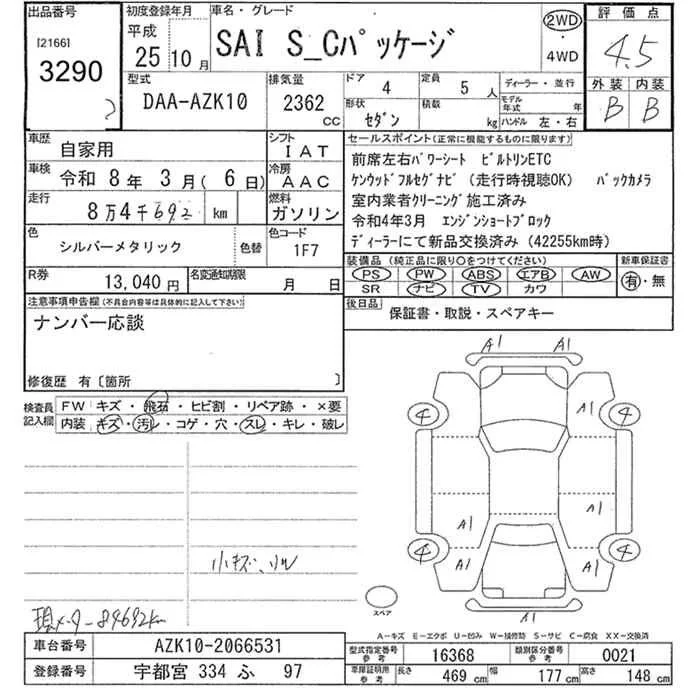 出品番号
I21661
3290
初度登録年月
平成
25年10月
車名・グレード
SAI S_Cパッケージ
2WD
・
4WD
評価点
4.5
外装 内装
B B
型式
DAA-AZK10
排気量
2362
CC
ドア
4
定員
5人
形状
セダン
積載
kg
ディーラー・並行
モデル年式 年
ハンドル 左・右
車歴
自家用
シフト
IAT
車検
令和 8年 3月( 6日)
冷房
AAC
走行
8万4千692 km
燃料
ガソリン
色
シルバーメタリック
色替
色コード
1F7
R券
13,040円
名変通知期限
月 日
セールスポイント(正常に機能するものに限ります)
前席左右パワーシート ビルトリンETC
ケンウッドフルセグナビ(走行時視聴OK) バックカメラ
室内業者クリーニング施工済み
令和4年3月 エンジンショートブロック
ディーラーにて新品交換済み(42255km時)
装備品(純正品に限り○をつけてください)
新車保証書
PS PW ABS エアB AW
SR ナビ TV カワ
有・無
後日品
保証書・取説・スペアキー
注意事項申告欄(不具合内容等は具体的に記入して下さい)
ナンバー応談
修復歴 有〔箇所 〕
検査員
記入欄
FW キズ・飛石・ヒビ割・リペア跡・×要
内装 キズ・汚レ・コゲ・穴・スレ・キレ・破レ
A1 A1
4 A1 4
A1 A1
4 A1 A1 4
A1
小キズ、
現メーター84692km
スペア
A−キズ E−エクボ U−凹み W−補修跡 S−サビ C−腐食 XX−交換済
車台番号
AZK10-2066531
登録番号
宇都宮 334 ふ 97
型式指定番号
参考
16368
類別区分番号
参考
0021
車庫証明用
参考
長さ
469 cm
幅
177 cm
高さ
148 cm